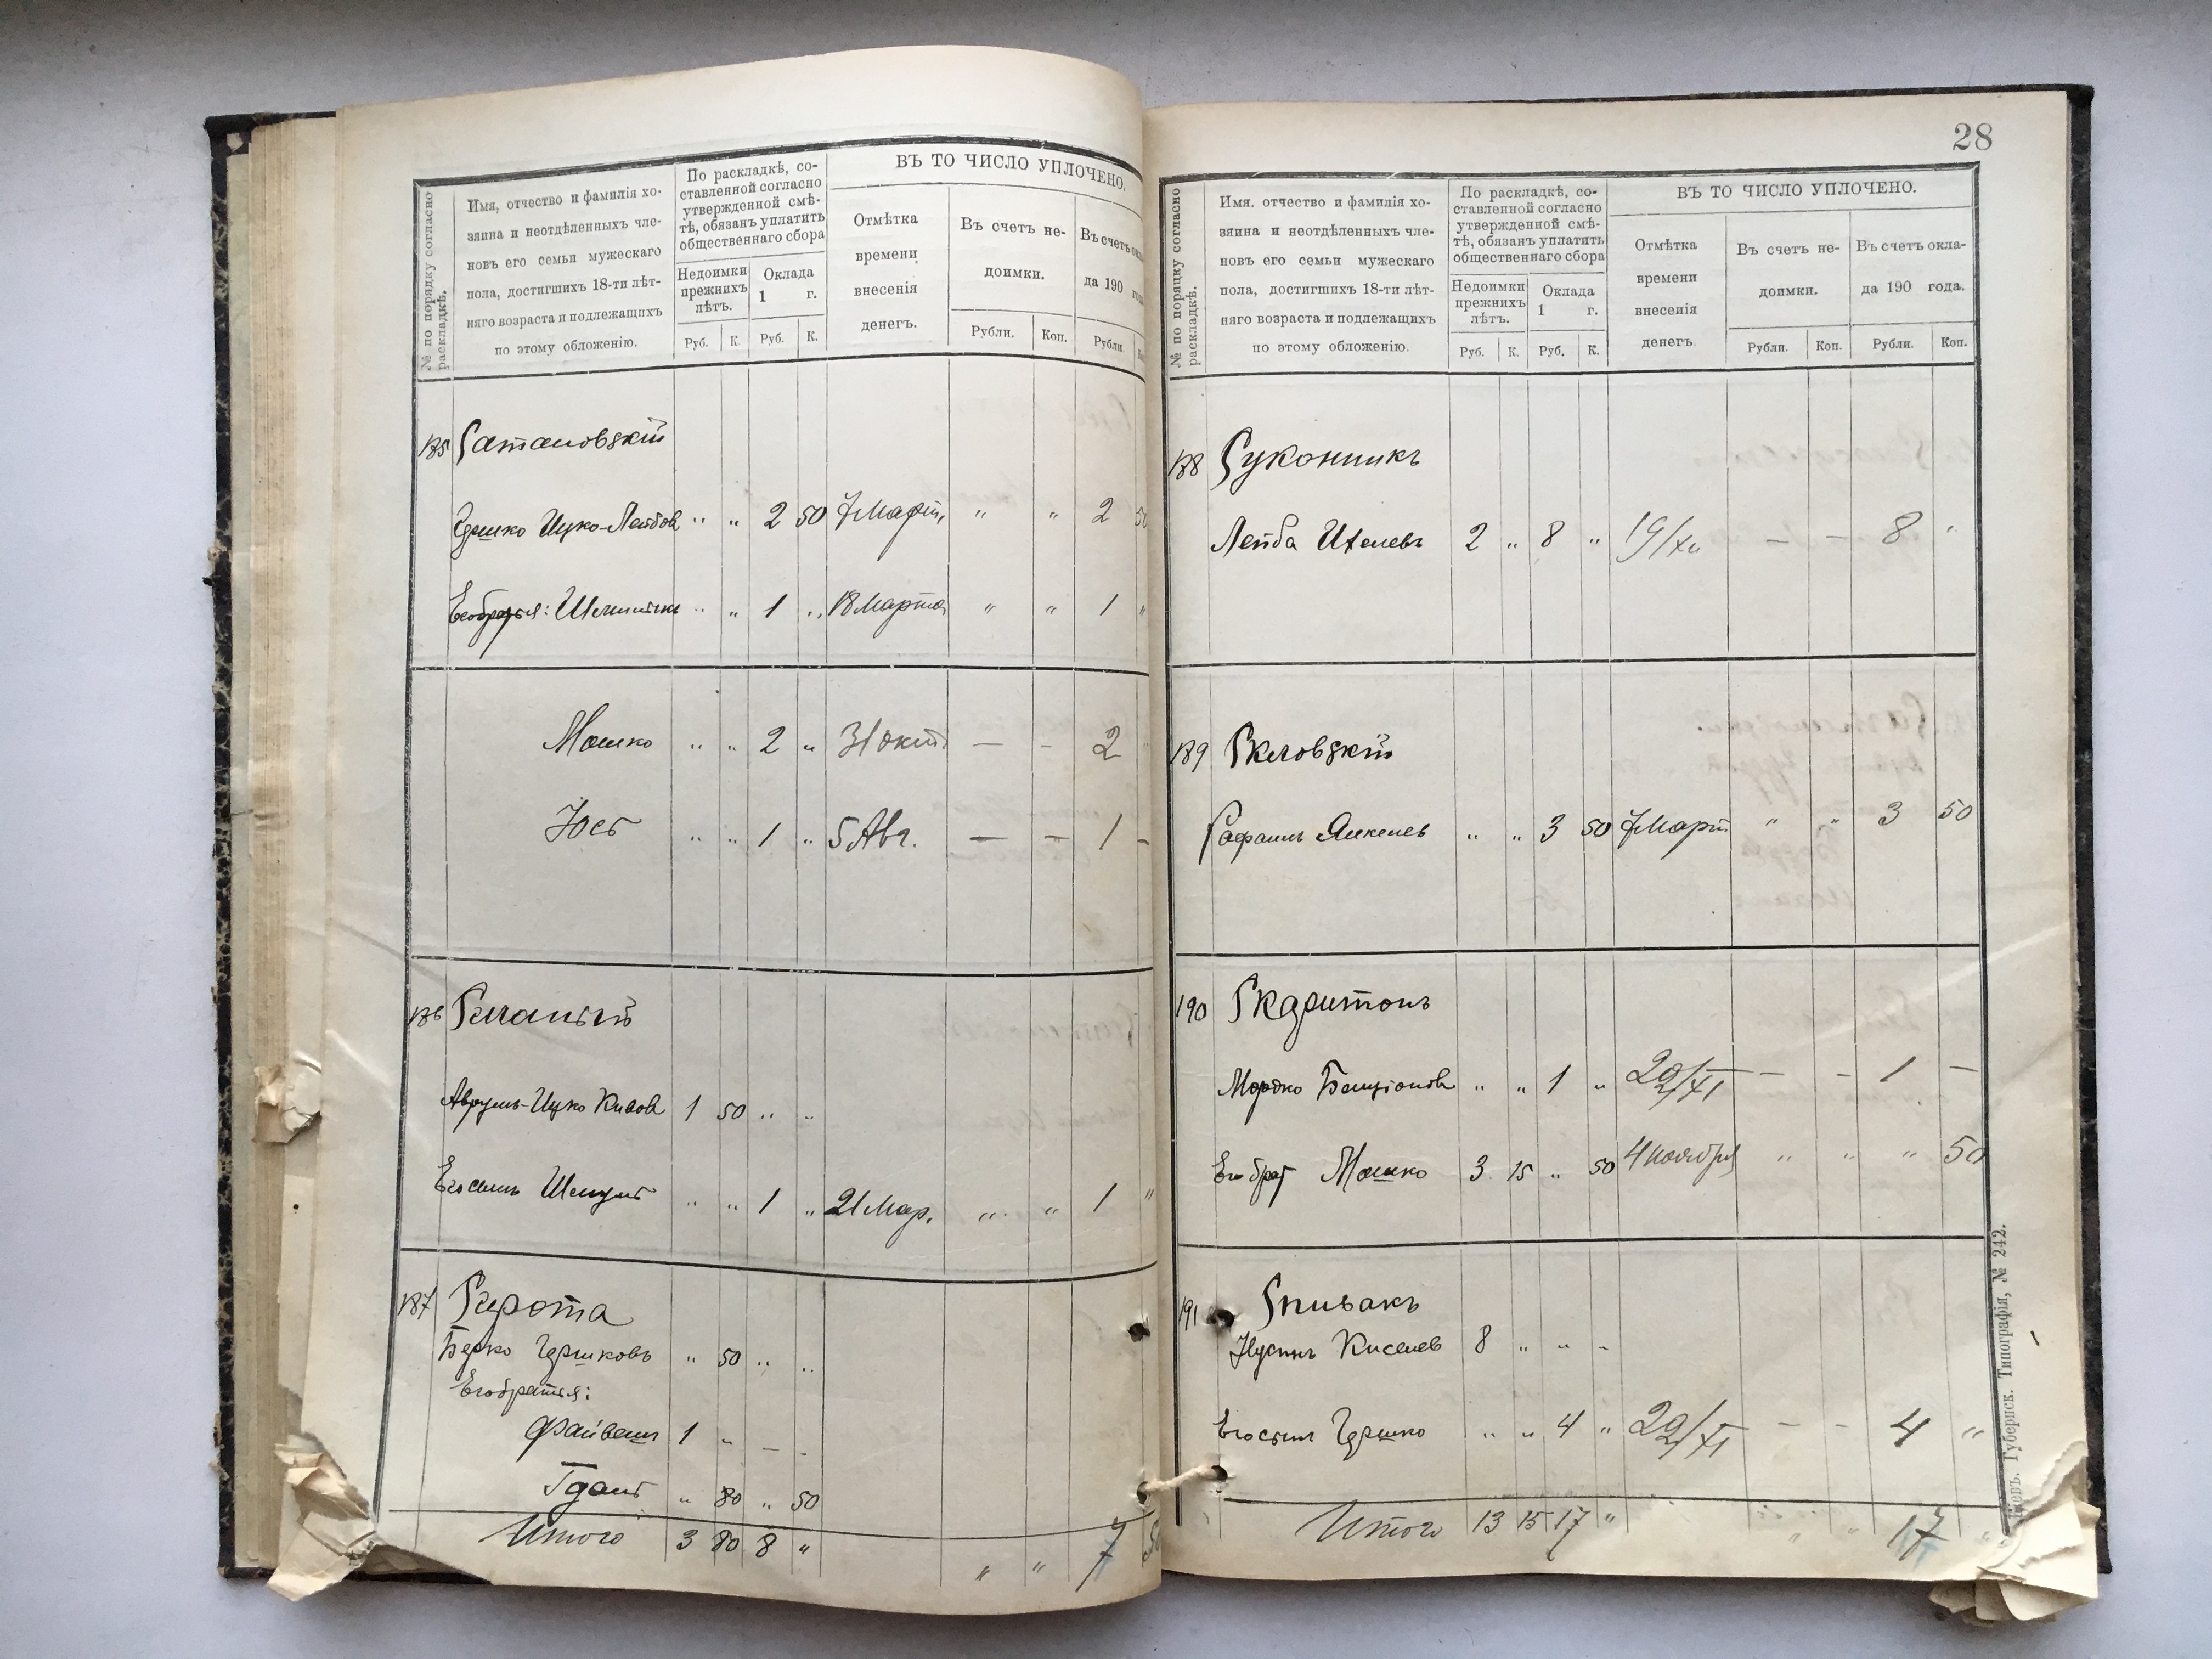 № по порядку согласно
раскладкѣ.
Имя, отчество и фамилія хо-
зяина и неотдѣленныхъ чле-
новъ его семьи мужескаго
пола, достигшихъ 18-ти лѣт-
няго возраста и подлежащихъ
по этому обложенію.
По раскладкѣ, со-
ставленной согласно
утвержденной смѣ-
тѣ, обязанъ уплатить
общественнаго сбора
Недоимки
прежнихъ
лѣтъ.
Оклада
1 г.
Руб. К. Руб. К.
ВЪ ТО ЧИСЛО УПЛОЧЕНО.
Отмѣтка
времени
внесенія
денегъ.
Въ счетъ не-
доимки.
Рубли. Коп.
Въ счетъ
да 190
Рубли.
185 Сатановскій
Гершко Ицко-Лейбов " " 2 50 7 Март, " " 2 50
Его братья: " " 1 " 18 Марта " " 1 "
Мошко " " 2 " 31 окт — - 2
Юсь " " 1 " 5 Авг. — - 1 -
186
Аврумъ-Ицко 1 50 " "
Его сынъ " " 1 " 21 Мар. " " 1 "
187 Сирота
Берко Гершковъ " 50 " "
Его братья:
Файвель 1 " - -
" 80 " 50
Итого 3 80 8 " " " 7 50
28
№ по порядку согласно
раскладкѣ.
Имя. отчество и фамилія хо-
зяина и неотдѣленныхъ чле-
новъ его семьи мужескаго
пола, достигшихъ 18-ти лѣт-
няго возраста и подлежащихъ
по этому обложенію.
По раскладкѣ, со-
ставленной согласно
утвержденной смѣ-
тѣ, обязанъ уплатить
общественнаго сбора
Недоимки
прежнихъ
лѣтъ.
Оклада
1 г.
Руб. К. Руб. К.
ВЪ ТО ЧИСЛО УПЛОЧЕНО.
Отмѣтка
времени
внесенія
денегъ.
Въ счетъ не-
доимки.
Рубли. Коп.
Въ счетъ окла-
да 190 года.
Рубли. Коп.
188 Суконникъ
Лейба 2 " 8 " 19/XII — — 8 "
189 Скловскій
Рафаилъ Янкелев " " 3 50 7 Март " " 3 50
190 Скаритонъ
Мордко Бенціонов " " 1 " 29/XI — - 1 —
Его брат Мошко 3 15 " 50 4 ноября " " " 50
191 Спивакъ
Нусинъ Киселев 8 " " "
Его сын Гершко " " 4 " 29/XI - - 4 "
Итого 13 15 17 " " " 17 "
Губернск. Типографія, № 242.